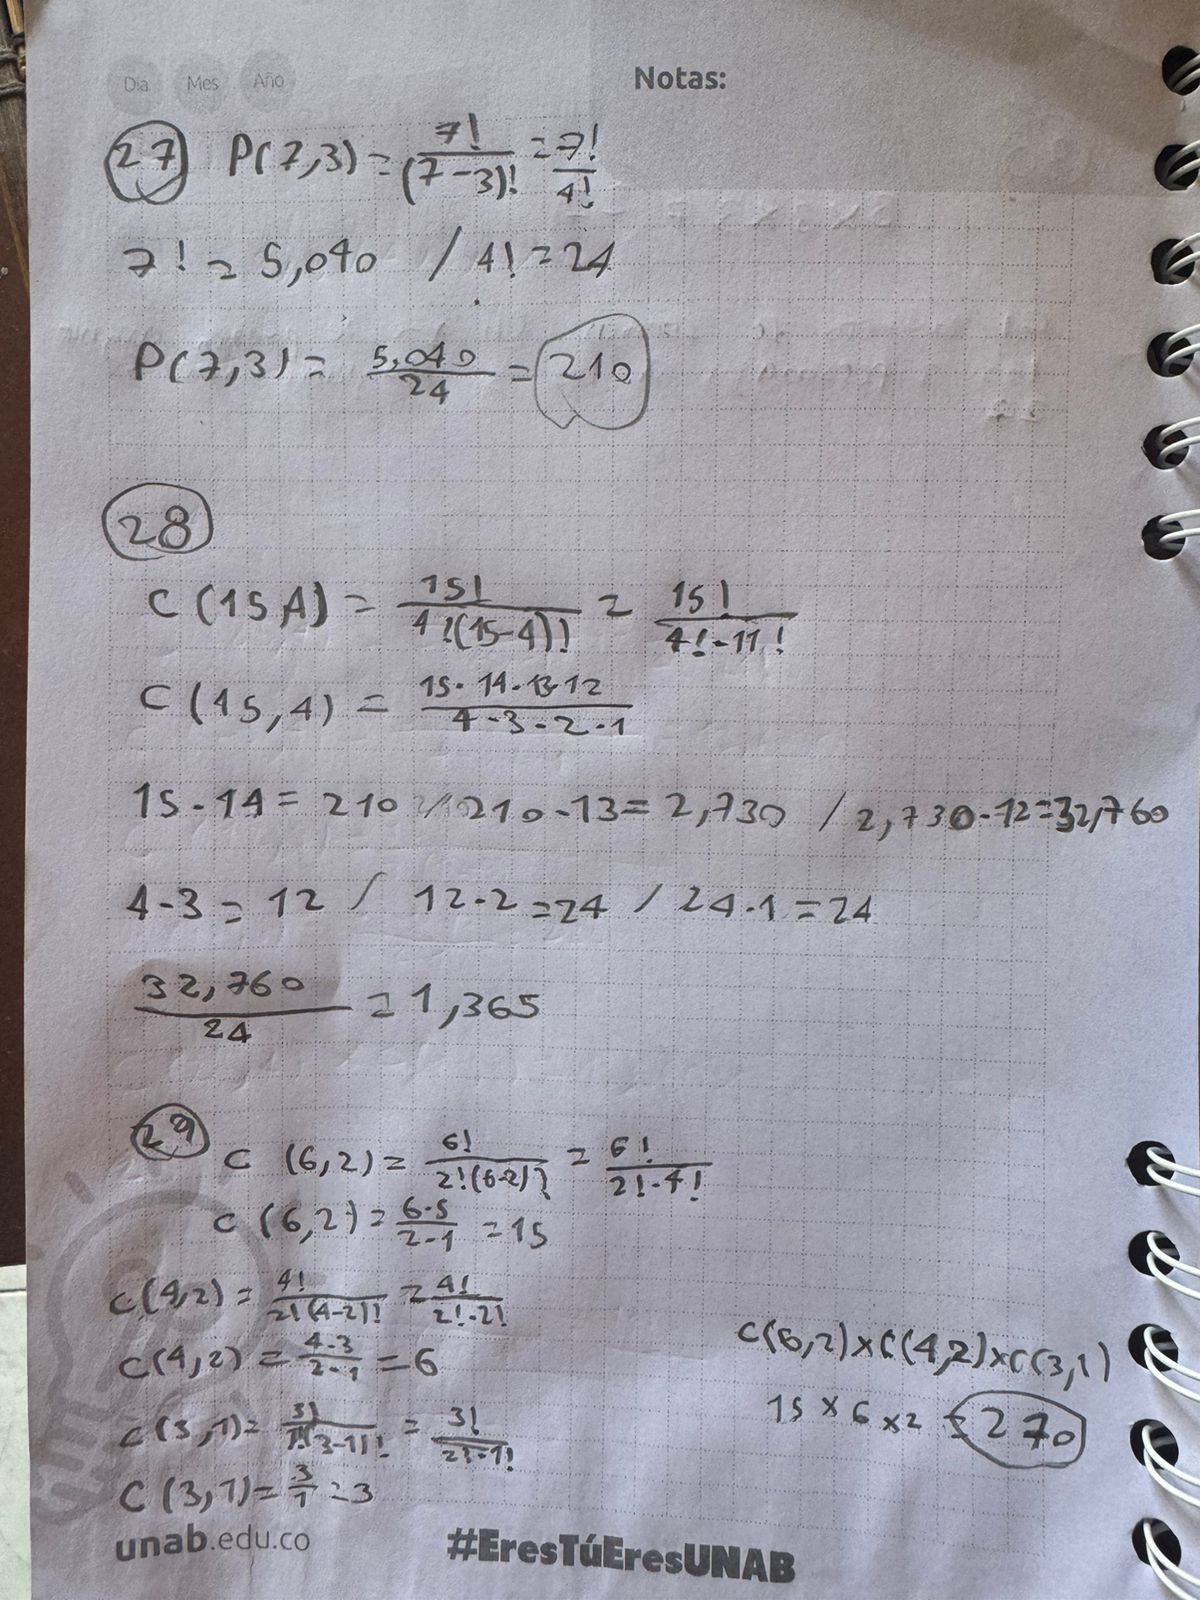 Día Mes Año Notas:
27 P(7,3) = 7!/(7-3)! = 7!/4!
7! = 5,040 / 4! = 24
P(7,3) = 5,040/24 = 210
28
C(15,4) = 15!/4!(15-4)! = 15!/4!·11!
C(15,4) = 15·14·13·12/4·3·2·1
15·14 = 210 / 210·13 = 2,730 / 2,730·12 = 32,760
4·3 = 12 / 12·2 = 24 / 24·1 = 24
32,760/24 = 1,365
29 C(6,2) = 6!/2!(6-2)! = 6!/2!·4!
C(6,2) = 6·5/2·1 = 15
C(4,2) = 4!/2!(4-2)! = 4!/2!·2!
C(4,2) = 4·3/2·1 = 6
C(3,1) = 3!/1!(3-1)! = 3!/2!·1!
C(3,1) = 3/1 = 3
C(6,2)×C(4,2)×C(3,1)
15 × 6 ×2 = 270
unab.edu.co #EresTúEresUNAB